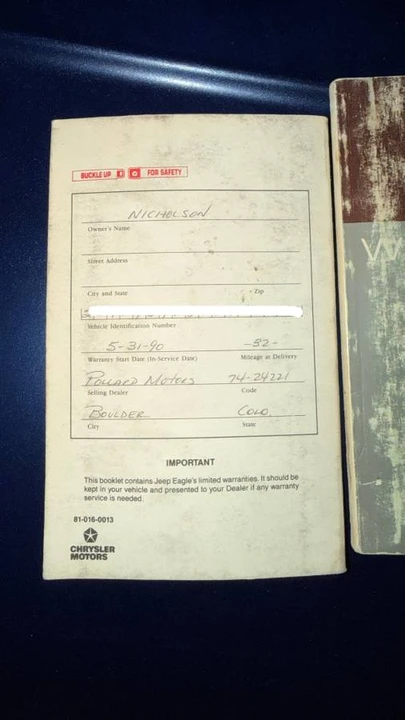 BUCKLE UP FOR SAFETY
NICHELSON
Owner's Name
Street Address
City and State Zip
Vehicle Identification Number
5-31-90 -52-
Warranty Start Date (In-Service Date) Mileage at Delivery
POLLARD MOTORS 74-24221
Selling Dealer Code
BOULDER COLO.
City State
IMPORTANT
This booklet contains Jeep Eagle's limited warranties. It should be
kept in your vehicle and presented to your Dealer if any warranty
service is needed.
81-016-0013
CHRYSLER
MOTORS